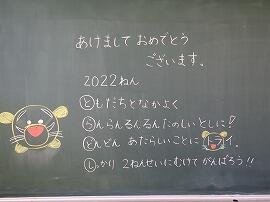 あけまして おめでとう
ございます。
2022ねん
ともだちとなかよく
らんらんるんるん たのしいとしに！
どんどん あたらしいことに トライ。
しっかり 2ねんせいにむけて がんばろう!!